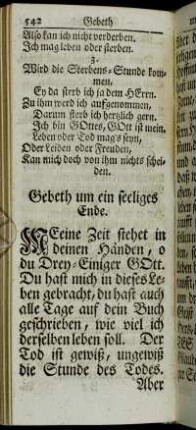 542 Gebeth
Also kan ich nicht verderben.
Ich mag leben oder sterben.
3.
Wird die Sterbens-Stunde kom-
men.
Ey da sterb ich ja dem HErrn.
Zu ihm werd ich aufgenommen,
Darum sterb ich hertzlich gern.
Ich bin GOttes, GOtt ist mein.
Leben oder Tod mag's seyn,
Oder Leiden oder Freuden,
Kan mich doch von ihm nichts schei-
den.
Gebeth um ein seeliges
Ende.
MEine Zeit stehet in
deinen Händen, o
du Drey-Einiger GOtt.
Du hast mich in dieses Le-
ben gebracht, du hast auch
alle Tage auf dein Buch
geschrieben, wie viel ich
derselben leben soll. Der
Tod ist gewiß, ungewiß
die Stunde des Todes.
Aber